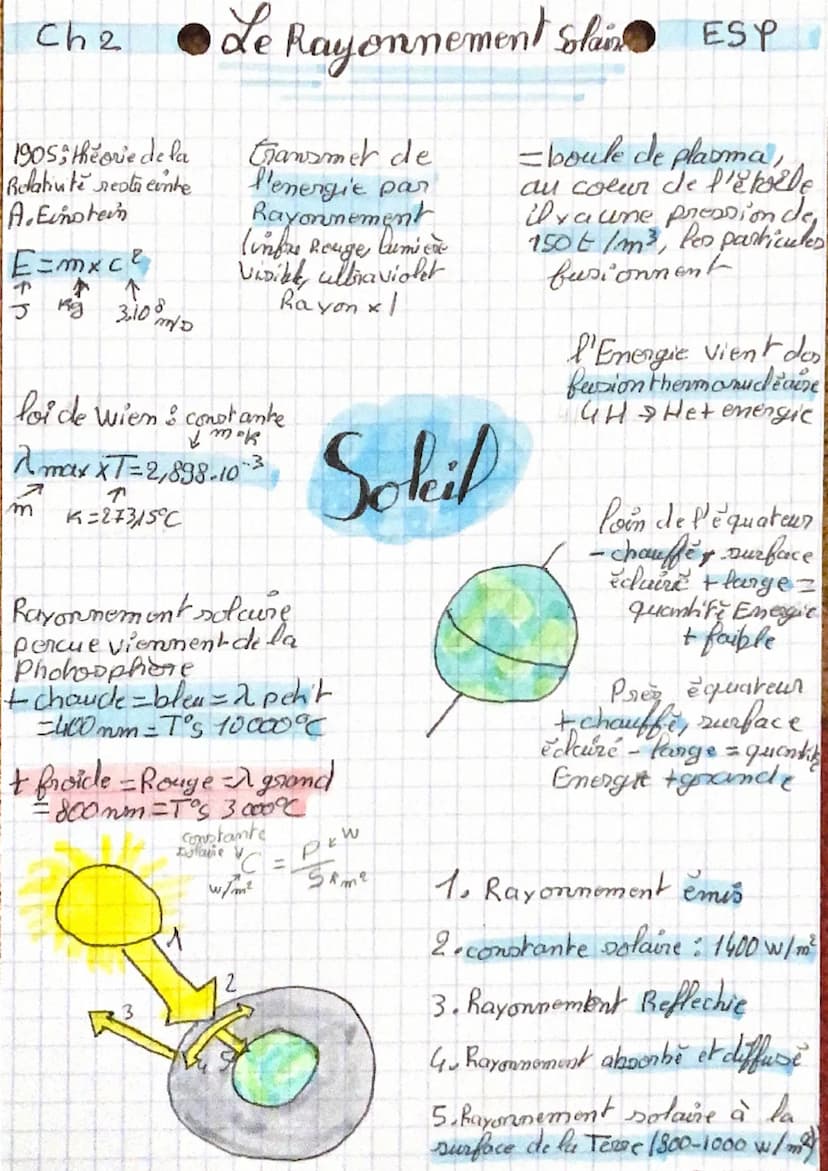 Ch 2
Le Rayonnement Solaire
ESP
1905 : théorie de la
Relativité restreinte
A. Einstein
E = m x c²
J
Kg
3.10⁸ m/s
transmet de
l'energie par
Rayonnement
(infra Rouge, lumière
visible, ultraviolet
Rayon x)
= boule de plasma,
au coeur de l'étoile
il y a une pression de
150 t/m³, les particules
fusionnent
l'Energie vient des
fusion thermonucléaire
4H → He + energie
loi de Wien : constante
m.K
λ max x T = 2,898.10⁻³
m
K = 273,15°C
Soleil
loin de l'équateur
- chauffé, surface
éclairé + large =
quantité Energie
+ faible
Près équateur
+ chauffé, surface
éclairé - large = quantité
Energie + grande
Rayonnement solaire
percue viennent de la
Photosphère
+ chaude = bleu = λ petit
= 400 nm = T°s 10 000°C
+ froide = Rouge = λ grand
= 800 nm = T°s 3 000°C
constante
solaire
C = P/S
W
w/m²
m²
1
2
3
4
5
1. Rayonnement émis
2. constante solaire : 1400 w/m²
3. Rayonnement Reflechie
4. Rayonnement absorbé et diffusé
5. Rayonnement solaire à la
surface de la Terre (800-1000 w/m²)